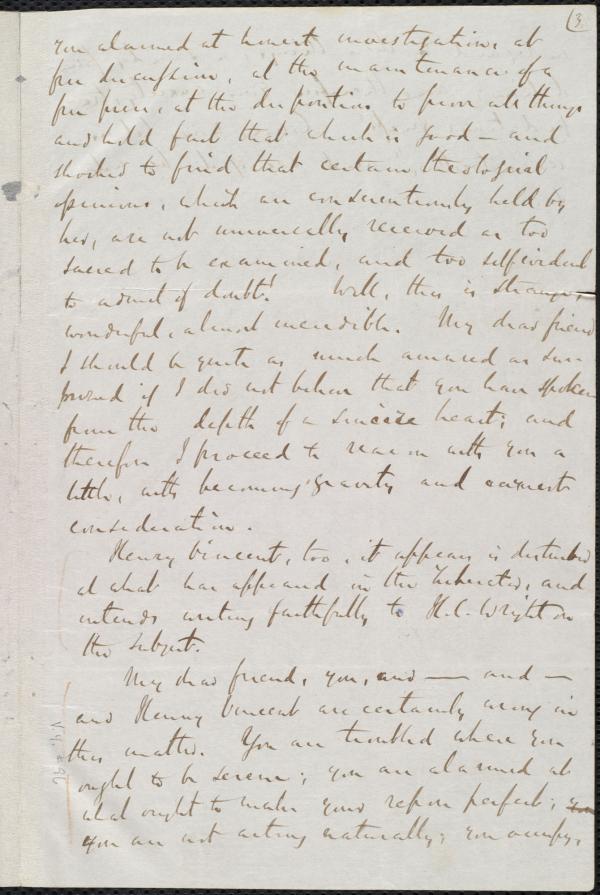 (3
you alarmed at honest investigation, at
free discussion, at the maintenance of a
free press, at the disposition to prove all things
and hold fast that which is good — and
shocked to find that certain theological
opinions, which are conscientiously held by
her, are not universally received as too
sacred to be examined, and too selfevident
to admit of doubt! Well, this is strange,
wonderful, almost incredible. My dear friend
I should be quite as much amused as sur-
prised if I did not believe that you have spoken
from the depth of a sincere heart; and
therefore I proceed to reason with you a
little, with becoming gravity and earnest
consideration.
Henry Vincent, too, it appears is disturbed
at what has appeared in the Liberator, and
intends writing faithfully to H. C. Wright on
the subject.
My dear friend, you, and — and —
and Henry Vincent are certainly wrong in
this matter. You are troubled where you
ought to be serene; you are alarmed at
what ought to make your repose perfect; you
you are not acting naturally; you occupy,